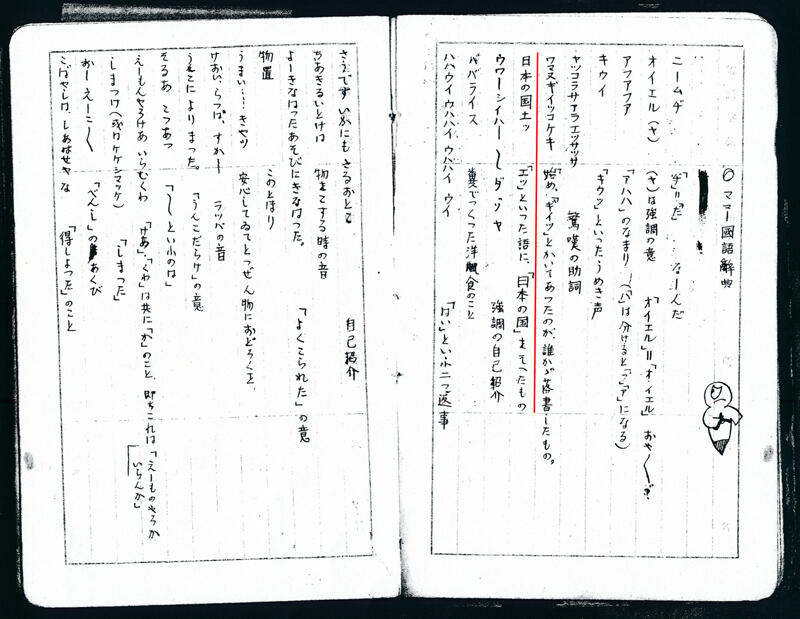 ○ マニー國語辭典
ニームゲ 「ゲ」=「だ」 なーんだ
オイエル(ヤ) (ヤ)は強調の意 「オイエル」=「オ、イエル」 おや〱
アファファア 「アハハ」のなまり (「ハ」は分けると「フ」「ア」になる)
キウイ 「キウッ」といった、うめき声
ヤッコラサアラエッサッサ 驚嘆の助詞
ワマヌギイッコケキ 始め、「ギイッ」とかいてあったのが、誰かゞ落書したもの。
日本の国土ッ 「エッ」といった語に、「日本の国」をそへたもの
ウワーシイハー〱ダッソヤ 強調の自己紹介
ババライス 糞でつくった洋食のこと
ハハウイ ウハハイ ウバハイ ウイ 「はい」といふ二つ返事
さうです いかにも さるおとこ 自己紹介
ちあきるいとけは 物をこする時の音
よーきなはったあそびにきなはった。 「よくこられた」の意
物置 このとほり
うまい……きやつ 安心してゐてとつぜん物におどろくこと。
けおい、らっぱ、すかー ラッパの音
うそこにより まった。 「うんこだらけ」の意
そるあ こつあつ 「〱といふのは」
えーもんやろけあ いらむくわ 「けあ」、「くわ」は共に「か」のこと、即ちこれは「えーものやろか いらんか」
しまつけ(或ロケケシマッケ) 「しまった」
おー えーこ〱 「べんし」のあくび
こばやしは、しあはせやな 「得しよった」のこと